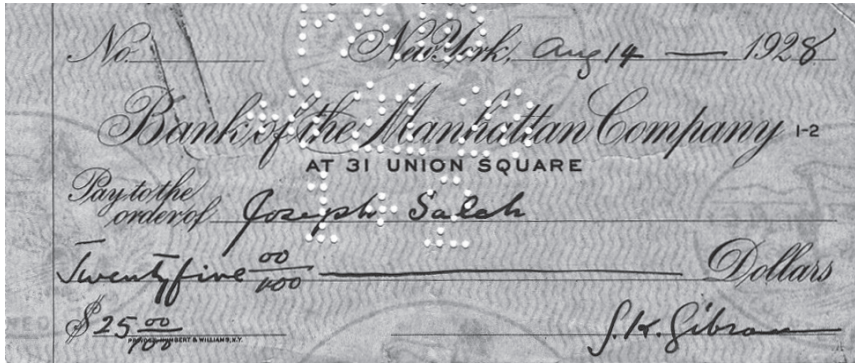 No. New York, Aug 14 — 1928
Bank of the Manhattan Company 1-2
AT 31 UNION SQUARE
Pay to the order of Joseph Saleh
Twenty five 00/100 Dollars
$25 00/100 G.K. Gibran